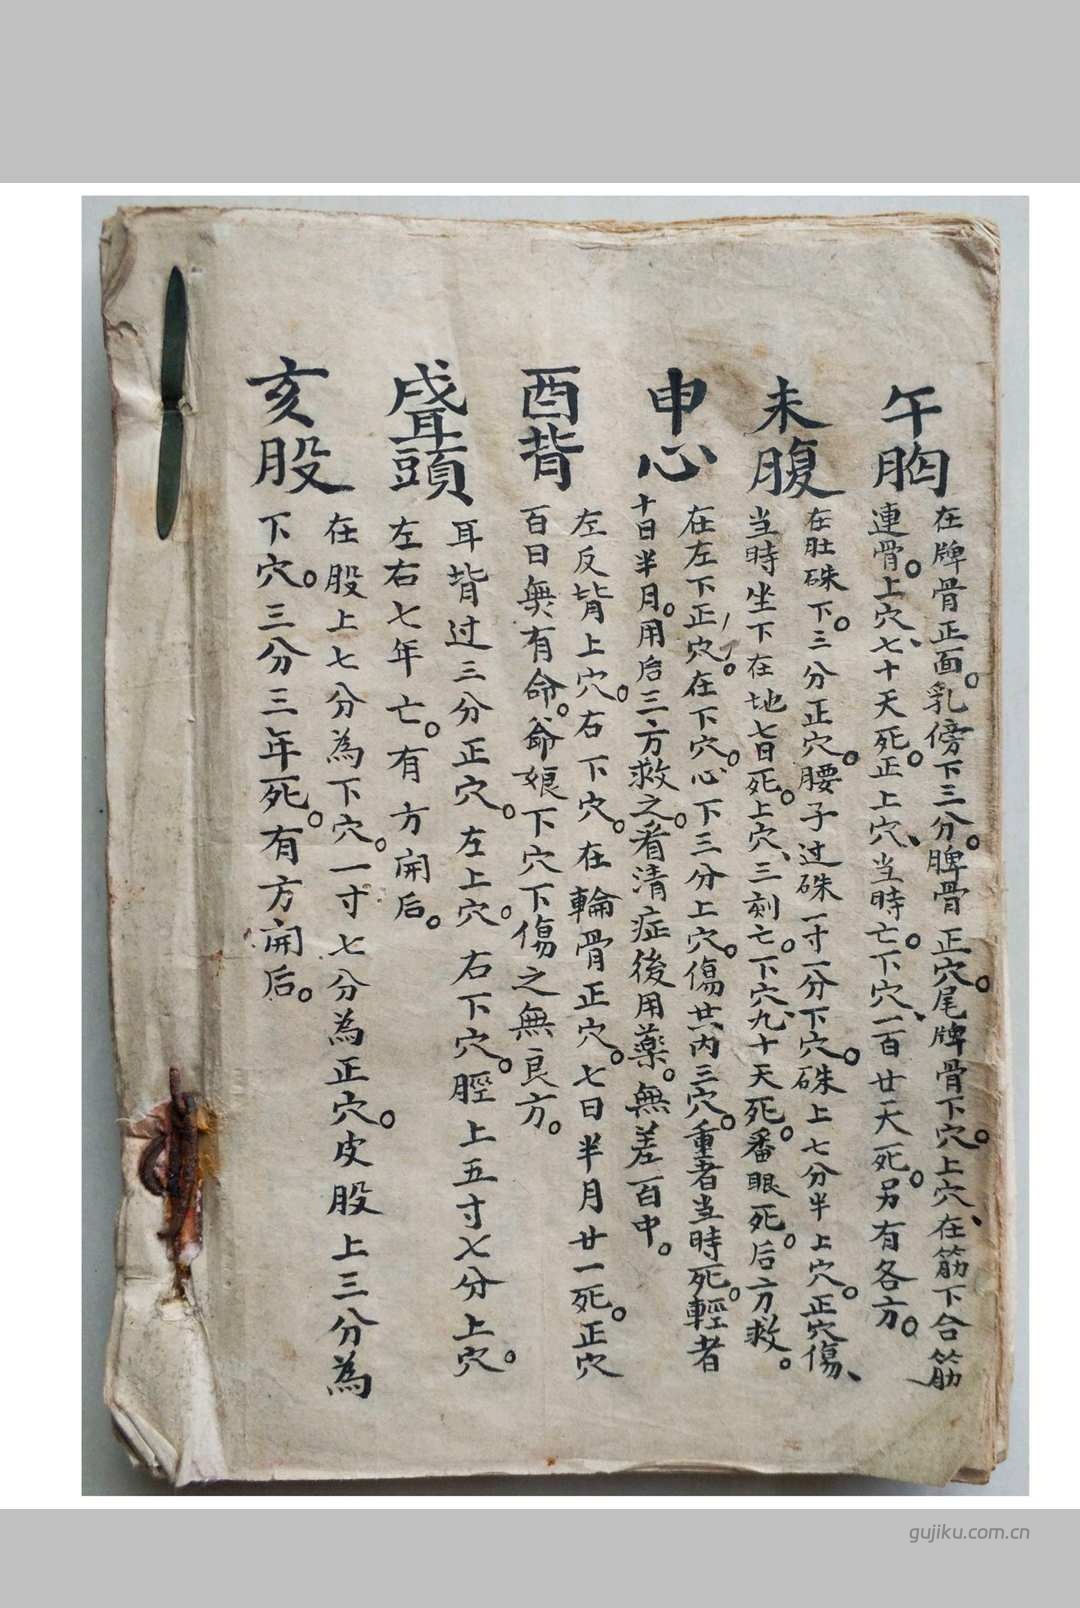 午胸
在牌骨正面。乳傍下三分。脾骨正穴。尾牌骨下穴。上穴、在筋下合筋
連骨。上穴、七十天死。正上穴、当時亡。下穴、一百廿天死。另有各方。
未腹
在肚硃下。三分正穴。腰子过硃一寸一分下穴。硃上七分半上穴。正穴傷、
当時坐下在地七日死。上穴、三刻亡。下穴、九十天死。番眼死。后方救。
申心
在左下正穴。在下穴。心下三分上穴。傷共内三穴。重者当時死。輕者
十日半月。用后三方救之。看清症後用藥。無差百中。
酉背
左反背上穴。右下穴。在輪骨正穴。七日半月廿一死。正穴
百日無有命。爺娘下穴下傷之無良方。
戌耳頭
耳背过三分正穴。左上穴。右下穴。脛上五寸七分上穴。
左右七年亡。有方開后。
亥股
在股上七分為下穴。一寸七分為正穴。皮股上三分為
下穴。三分三年死。有方開后。
gujiku.com.cn